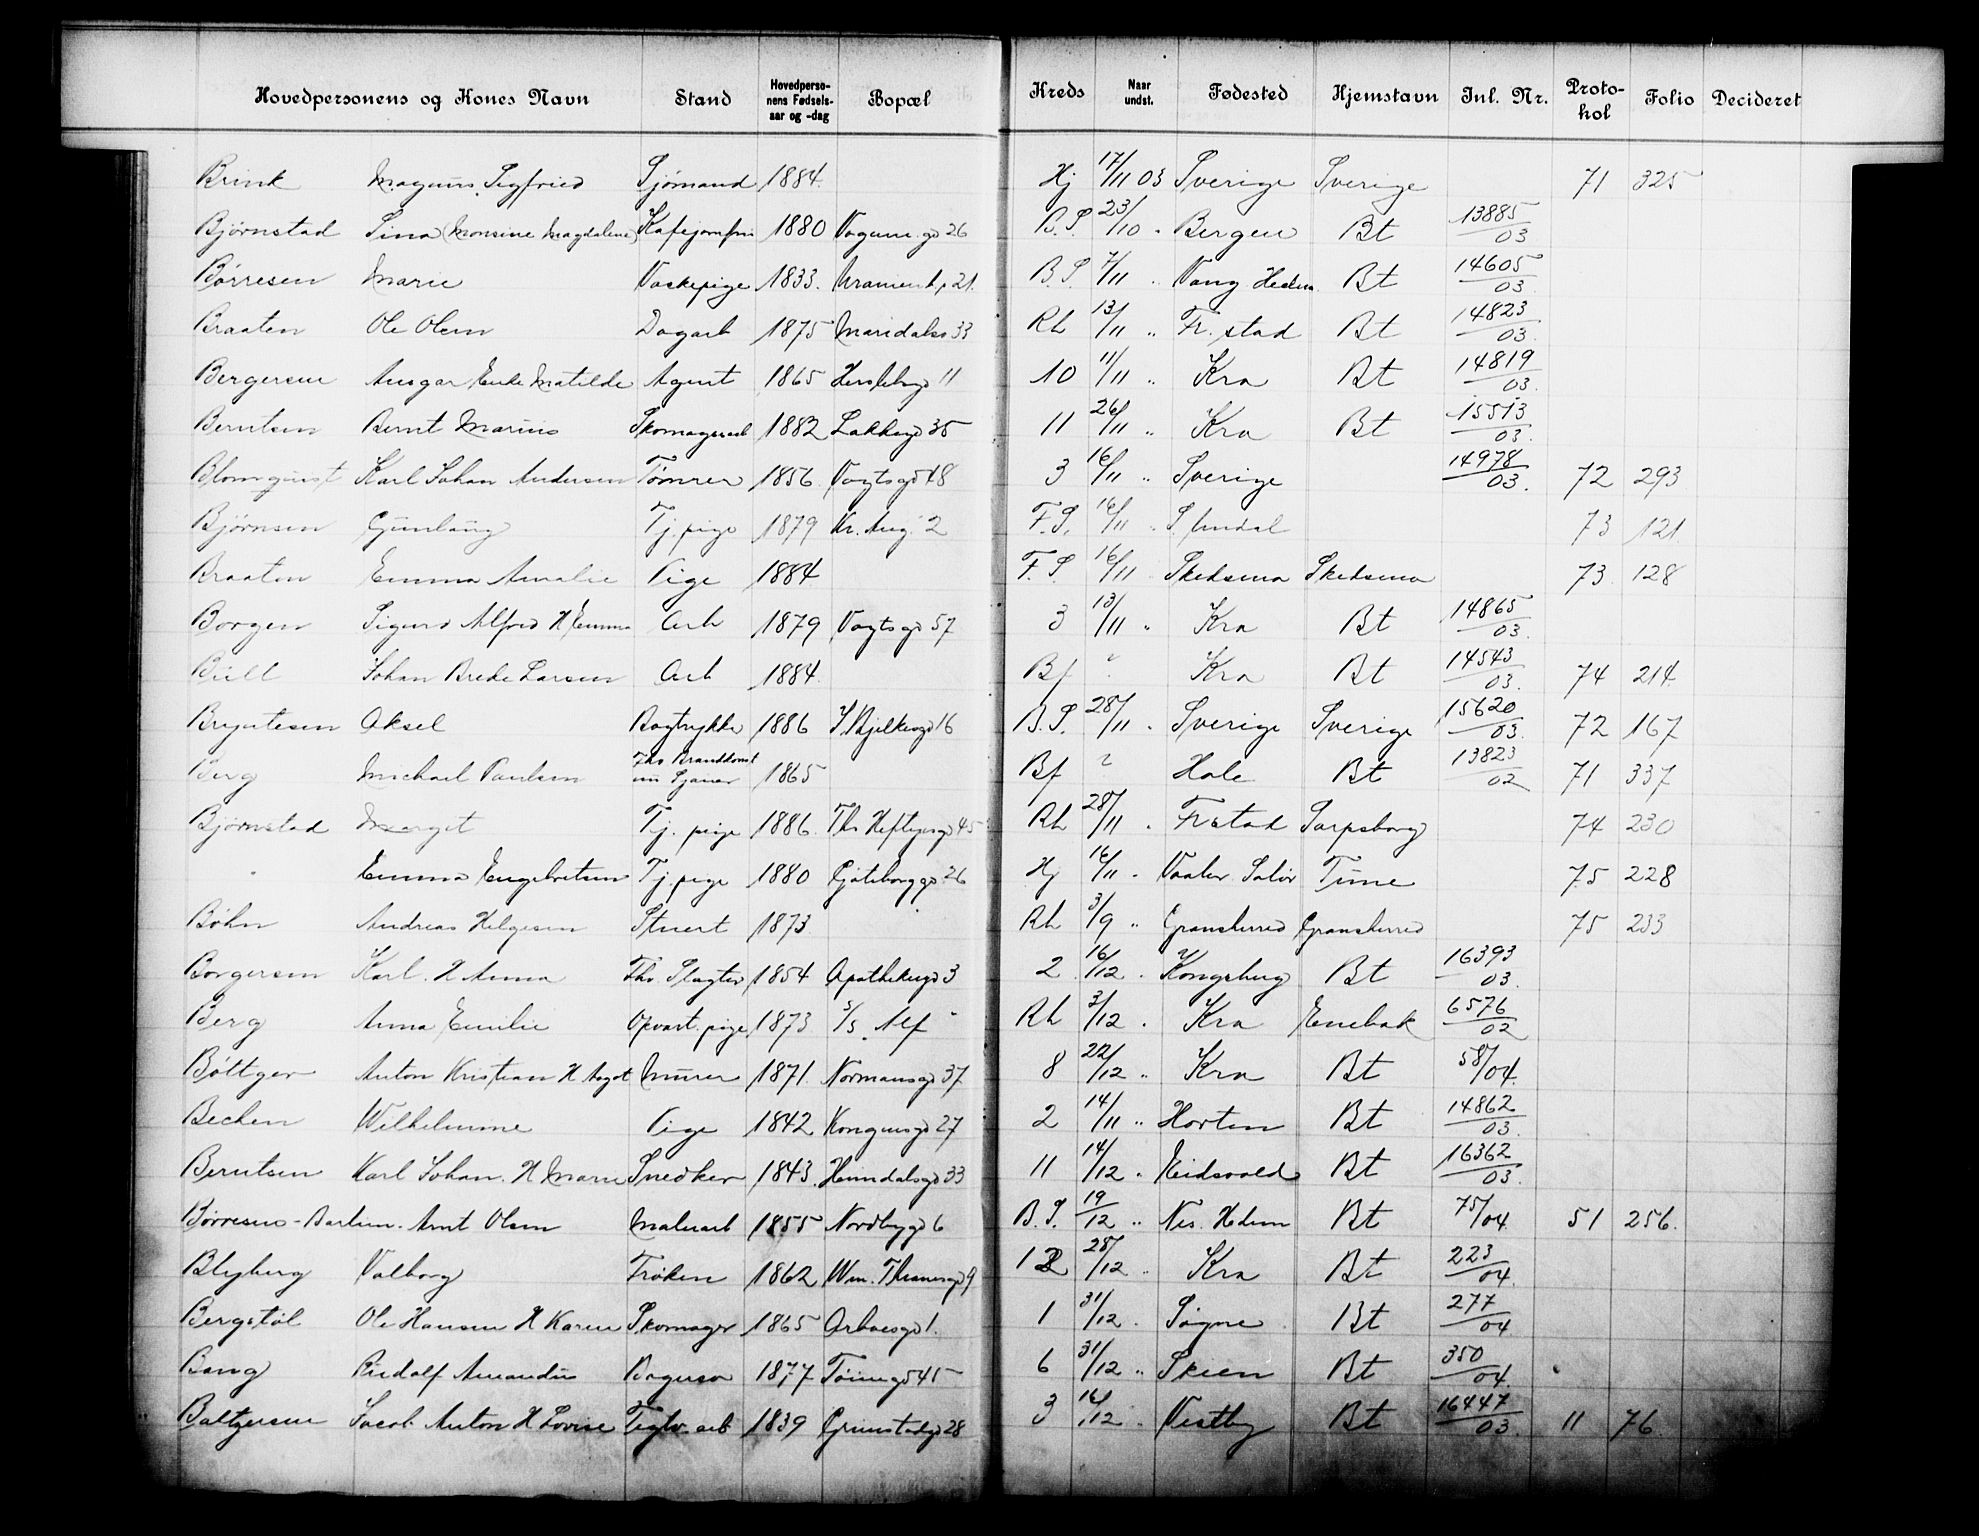 Hovedpersonens og Kones Navn Stand Hovedpersonens Fødselsaar og -dag Bopæl Kreds Naar undst. Fødested Hjemstavn Inl. Nr. Protokol Folio Decideret
Brink Magnus Sigfried Sjømand 1884. Hj 17/11 03 Sverige Sverige 71 325
Bjørnstad Sina (Monsine Magdalene) Kafejomfru 1880 26 B.S. 23/10 " Bergen Bt 13885/03
Børresen Marie Vaskepige 1833. 21. B.S. 7/11 " Vang Hedm. Bt 14605/03.
Braaten Ole Olsen Dagarb 1875 Maridalsv 33 Rh 13/11 " Fr. stad Bt 14823/03.
Bergersen Ansgar Enke Matilde Agent 1865 Herslebsgd 11 10 11/11 " Kra Bt 14819/03.
Berntsen Bernt Marius Skomagerarb 1882 Lakkegd 35 11 26/11 " Kra Bt 15513/03.
Blomquist Karl Johan Andersen Tømrer 1856 Vogtsgd 48 3 16/11 " Sverige 14978/03. 72 293
Bjørnsen Gunlaug Tj. pige 1879 Kr. Aug. 2 F.S. 16/11 " 73 121.
Braaten Emma Amalie Pige 1884 F.S. 16/11 " Skedsmo Skedsmo 73 128
Borgen Sigurd Alfred H Emma Arb 1879 Vogtsgd 57 3 13/11 " Kra Bt 14865/03.
Bull Johan Brede Larsen Arb 1884. Bf " Kra Bt 14543/03. 74 214.
Bryntesen Aksel Bogtrykker 1886 J. Bjelkesgd 16 B.S. 28/11 " Sverige Sverige 15620/03. 72 167
Berg Michael Paulsen Fhv Brandkonst nu Sjauer 1865 Bf ? Hole Bt 13823/02 71 337
Bjørnstad Marget Tj. pige 1886. Ths Heftyesgd 45 Rh 28/11 " Frstad Sarpsborg 74 230
" Emma Engebretsen Tj. pige 1880 Gjøteborggd. 26 Hj 16/11 " Vaaler. Solør Tune 75 228
Bøhn Andreas Helgesen Stuert 1873. Rh 3/9 " Gransherred Gransherred 75 233
Borgersen Karl. H Anna Fhv. Slagter 1854 Apothekergd 3 2 16/12 " Kongsberg Bt 16393/03.
Berg Anna Emilie Opvart. pige 1873. 3/s. Alf " Rh 3/12 " Kra Enebak 6576/02
Bøttger Anton Kristian H Aagot Murer 1871. Normansgd 37 8 22/12 " Kra Bt 58/04.
Bechen Wilhelmine Pige 1842 Kongensgd 27 2 14/11 " Horten Bt 14862/03.
Berntsen Karl Johan. H Marie Snedker 1843. Heimdalsgd 33 11 14/12 " Eidsvold Bt 16362/03.
Børresens-Bartien. Arnt Olsen Malerarb 1855 Nordbygd 6 B.S. 19/12 " Nes. Hedm Bt 75/04. 51 256.
Blyberg Valborg Frøken 1862 Wm. Thranesgd 9 12 28/12 " Kra Bt 223/04.
Bergstøl Ole Hansen H Karen Skomager 1865 Arboesgd 1. 1 31/12 " Søgne Bt 277/04
Bang Rudolf Amandus 1877 Tøiengd 45 6 31/12 " Skien Bt 350/04.
Baltzersen Jacob Anton H Lovise Teglv. arb 1839 Grimstadgd 28 3 16/12 " Vestby Bt 16447/03. 11 76.